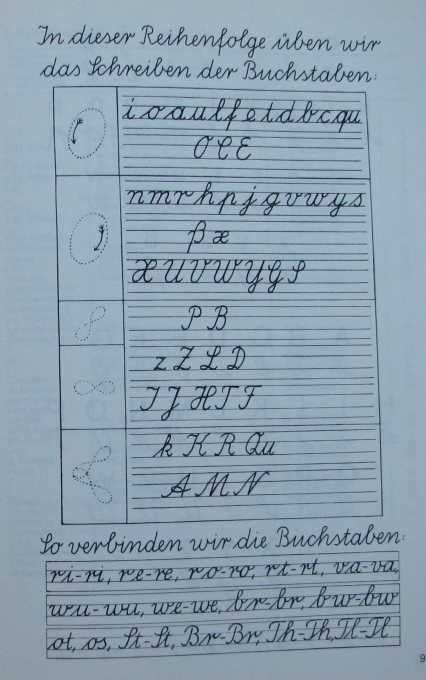 In dieser Reihenfolge üben wir
das Schreiben der Buchstaben:
i o a u l f e t d b c qu
O C E
n m r h p j g v w y s
ß x
X U V W Y G S
P B
z Z L D
I J H T F
k K R Qu
A M N
So verbinden wir die Buchstaben:
ri-ri, re-re, ro-ro, rt-rt, va-va,
wu-wu, we-we, br-br, bw-bw
ot, os, St-St, Br-Br, Th-Th, Tl-Tl
9